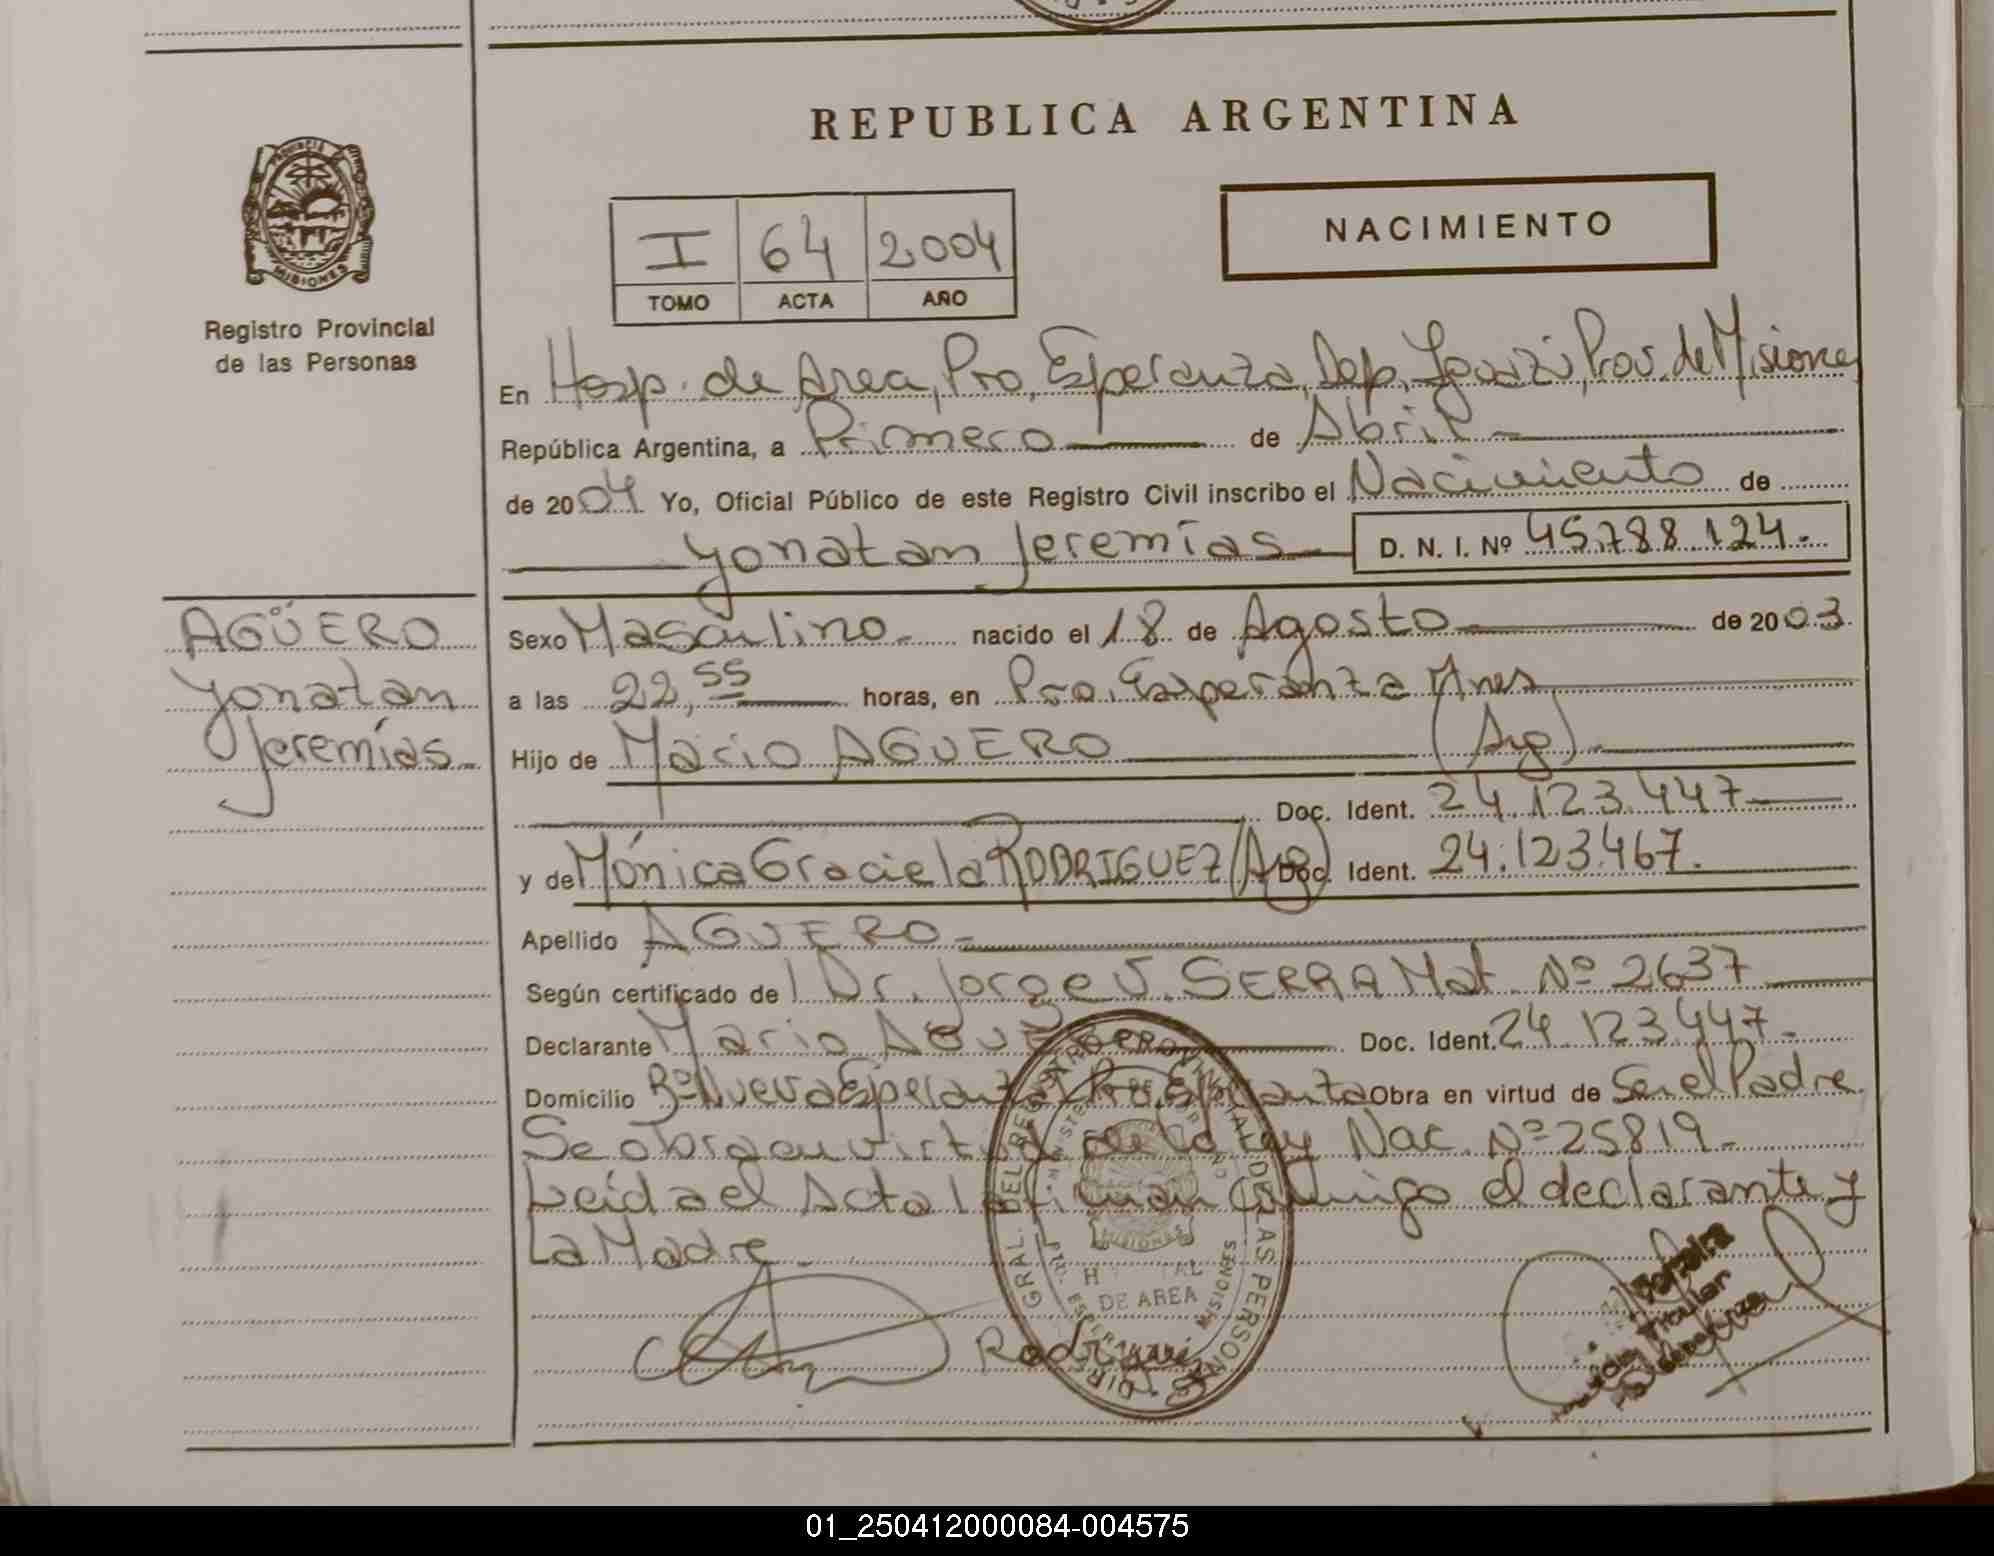 REPUBLICA ARGENTINA
PROVINCIA DE MISIONES
Registro Provincial
de las Personas
I 64 2004
TOMO ACTA AÑO
NACIMIENTO
En Hosp. de Area, Pto, Esperanza, Dep. Iguazú, Prov. de Misiones
República Argentina, a Primero de Abril
de 2004 Yo, Oficial Público de este Registro Civil inscribo el Nacimiento de
Yonatan Jeremías D. N. I. Nº 45.788.124.
AGÜERO
Yonatan
Jeremías.
Sexo Masculino. nacido el 18 de Agosto de 2003
a las 22,55 horas, en Pto. Esperanza Mnes
Hijo de Mario AGUERO (Arg).
Doc. Ident. 24.123.447
y de Mónica Graciela RODRIGUEZ (Arg) Doc. Ident. 24.123.467.
Apellido AGUERO
Según certificado de Dr. Jorge J. SERRA Mat. Nº 2637
Declarante Mario AGUERO Doc. Ident. 24.123.447.
Domicilio Bº Nueva Esperanza Pto. Esperanza Obra en virtud de Ser el Padre.
Se obra en virtud de la Ley Nac. Nº 25819.
Leída el Acta la firman conmigo el declarante y
La Madre.
DIR. GRAL. DEL REGISTRO PROVINCIAL DE LAS PERSONAS
MISIONES
DE AREA
MISIONES
01_250412000084-004575